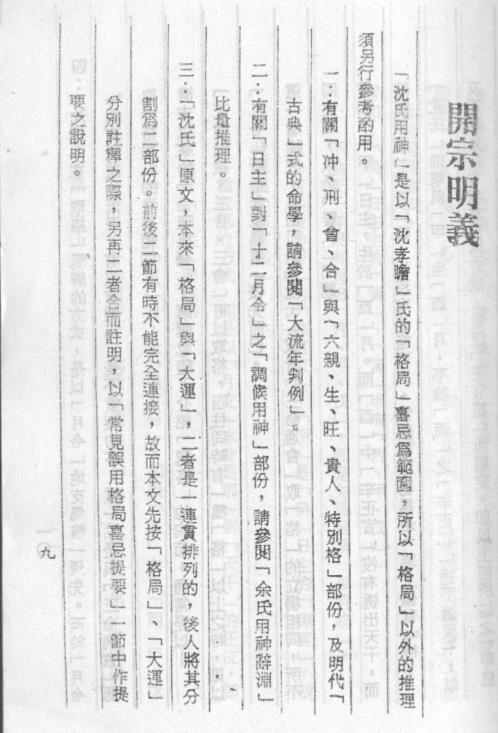 開宗明義
「沈氏用神」是以「沈孝瞻」氏的「格局」喜忌爲範圍，所以「格局」以外的推理
須另行參考酌用。
一：有關「冲、刑、會、合」與「六親、生、旺、貴人、特別格」部份，及明代「
古典」式的命學，請參閱「大流年判例」。
二：有關「日主」對「十二月令」之「調候用神」部份，請參閱「余氏用神辭淵」
比量推理。
三：「沈氏」原文，本來「格局」與「大運」，二者是一連貫排列的，後人將其分
割爲二部份。前後二節有時不能完全連接，故而本文先按「格局」、「大運」
分別註釋之際，另再二者合而註明，以「常見誤用格局喜忌提要」一節中作提
要之說明。
九